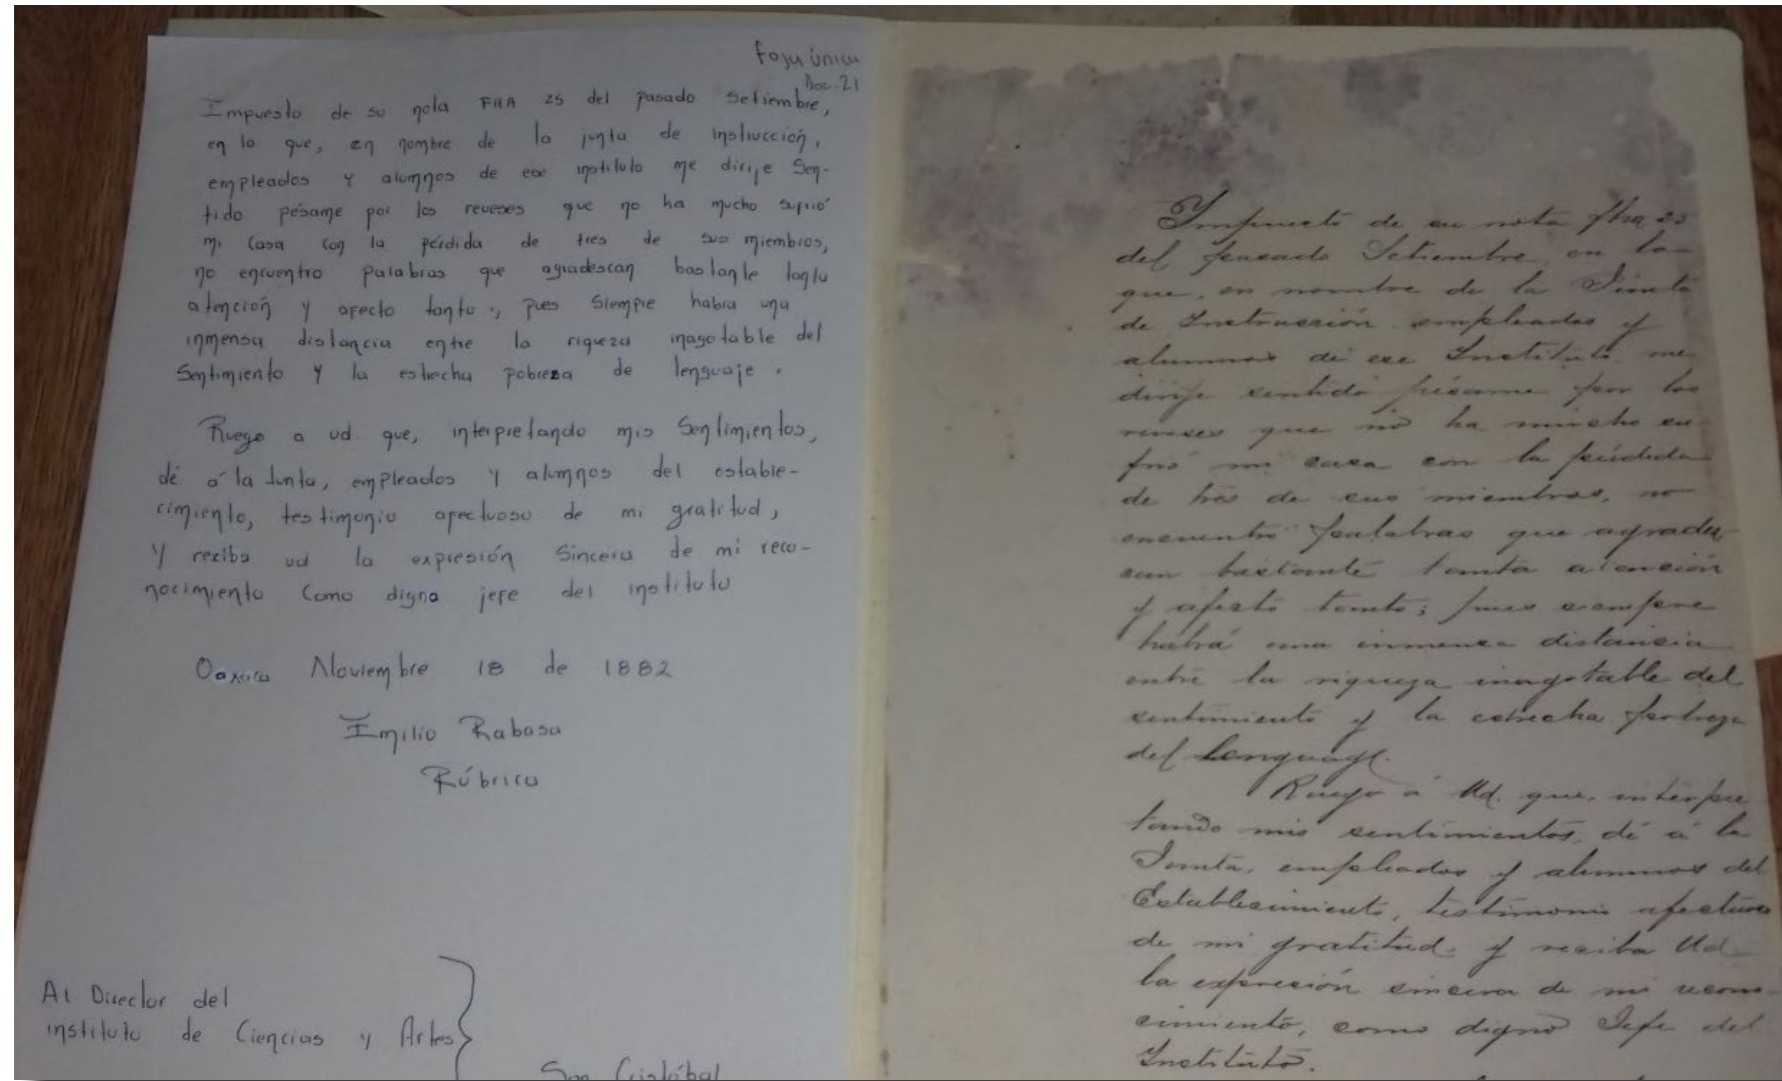 Foja única
Doc. 21
Impuesto de su nota FHA 25 del pasado Setiembre,
en la que, en nombre de la junta de instrucción,
empleados y alumnos de ese instituto me dirije Sen-
tido pésame por los reveses que no ha mucho sufrió
mi casa con la pérdida de tres de sus miembros,
no encuentro palabras que agradescan bastante tanta
atención y afecto tanto; pues siempre habra una
inmensa distancia entre la riqueza inagotable del
Sentimiento y la estrecha pobreza de lenguaje.
Ruego a ud. que, interpretando mis Sentimientos,
dé á la Junta, empleados y alumnos del estable-
cimiento, testimonio afectuoso de mi gratitud,
y reciba ud la expresión Sincera de mi reco-
nocimiento Como digno jefe del instituto
Oaxaca Noviembre 18 de 1882
Emilio Rabasa
Rúbrica
Al Director del
instituto de Ciencias y Artes
San Cristóbal
Impuesto de su nota fha 25
del pasado Setiembre, en la
que, en nombre de la Junta
de Instrucción, empleados y
alumnos de ese Instituto, me
dirije sentido pésame por los
reveses que no ha mucho su
frió mi casa con la pérdida
de tres de sus miembros, no
encuentro palabras que agradez-
can bastante tanta atención
y afecto tanto; pues siempre
habrá una inmensa distancia
entre la riqueza inagotable del
sentimiento y la estrecha pobreza
del lenguage.
Ruego á Ud. que, interpre
tando mis sentimientos, dé á la
Junta, empleados y alumnos del
Establecimiento, testimonio afectuoso
de mi gratitud, y reciba Ud.
la expresión sincera de mi recono-
cimiento, como digno Jefe del
Instituto.